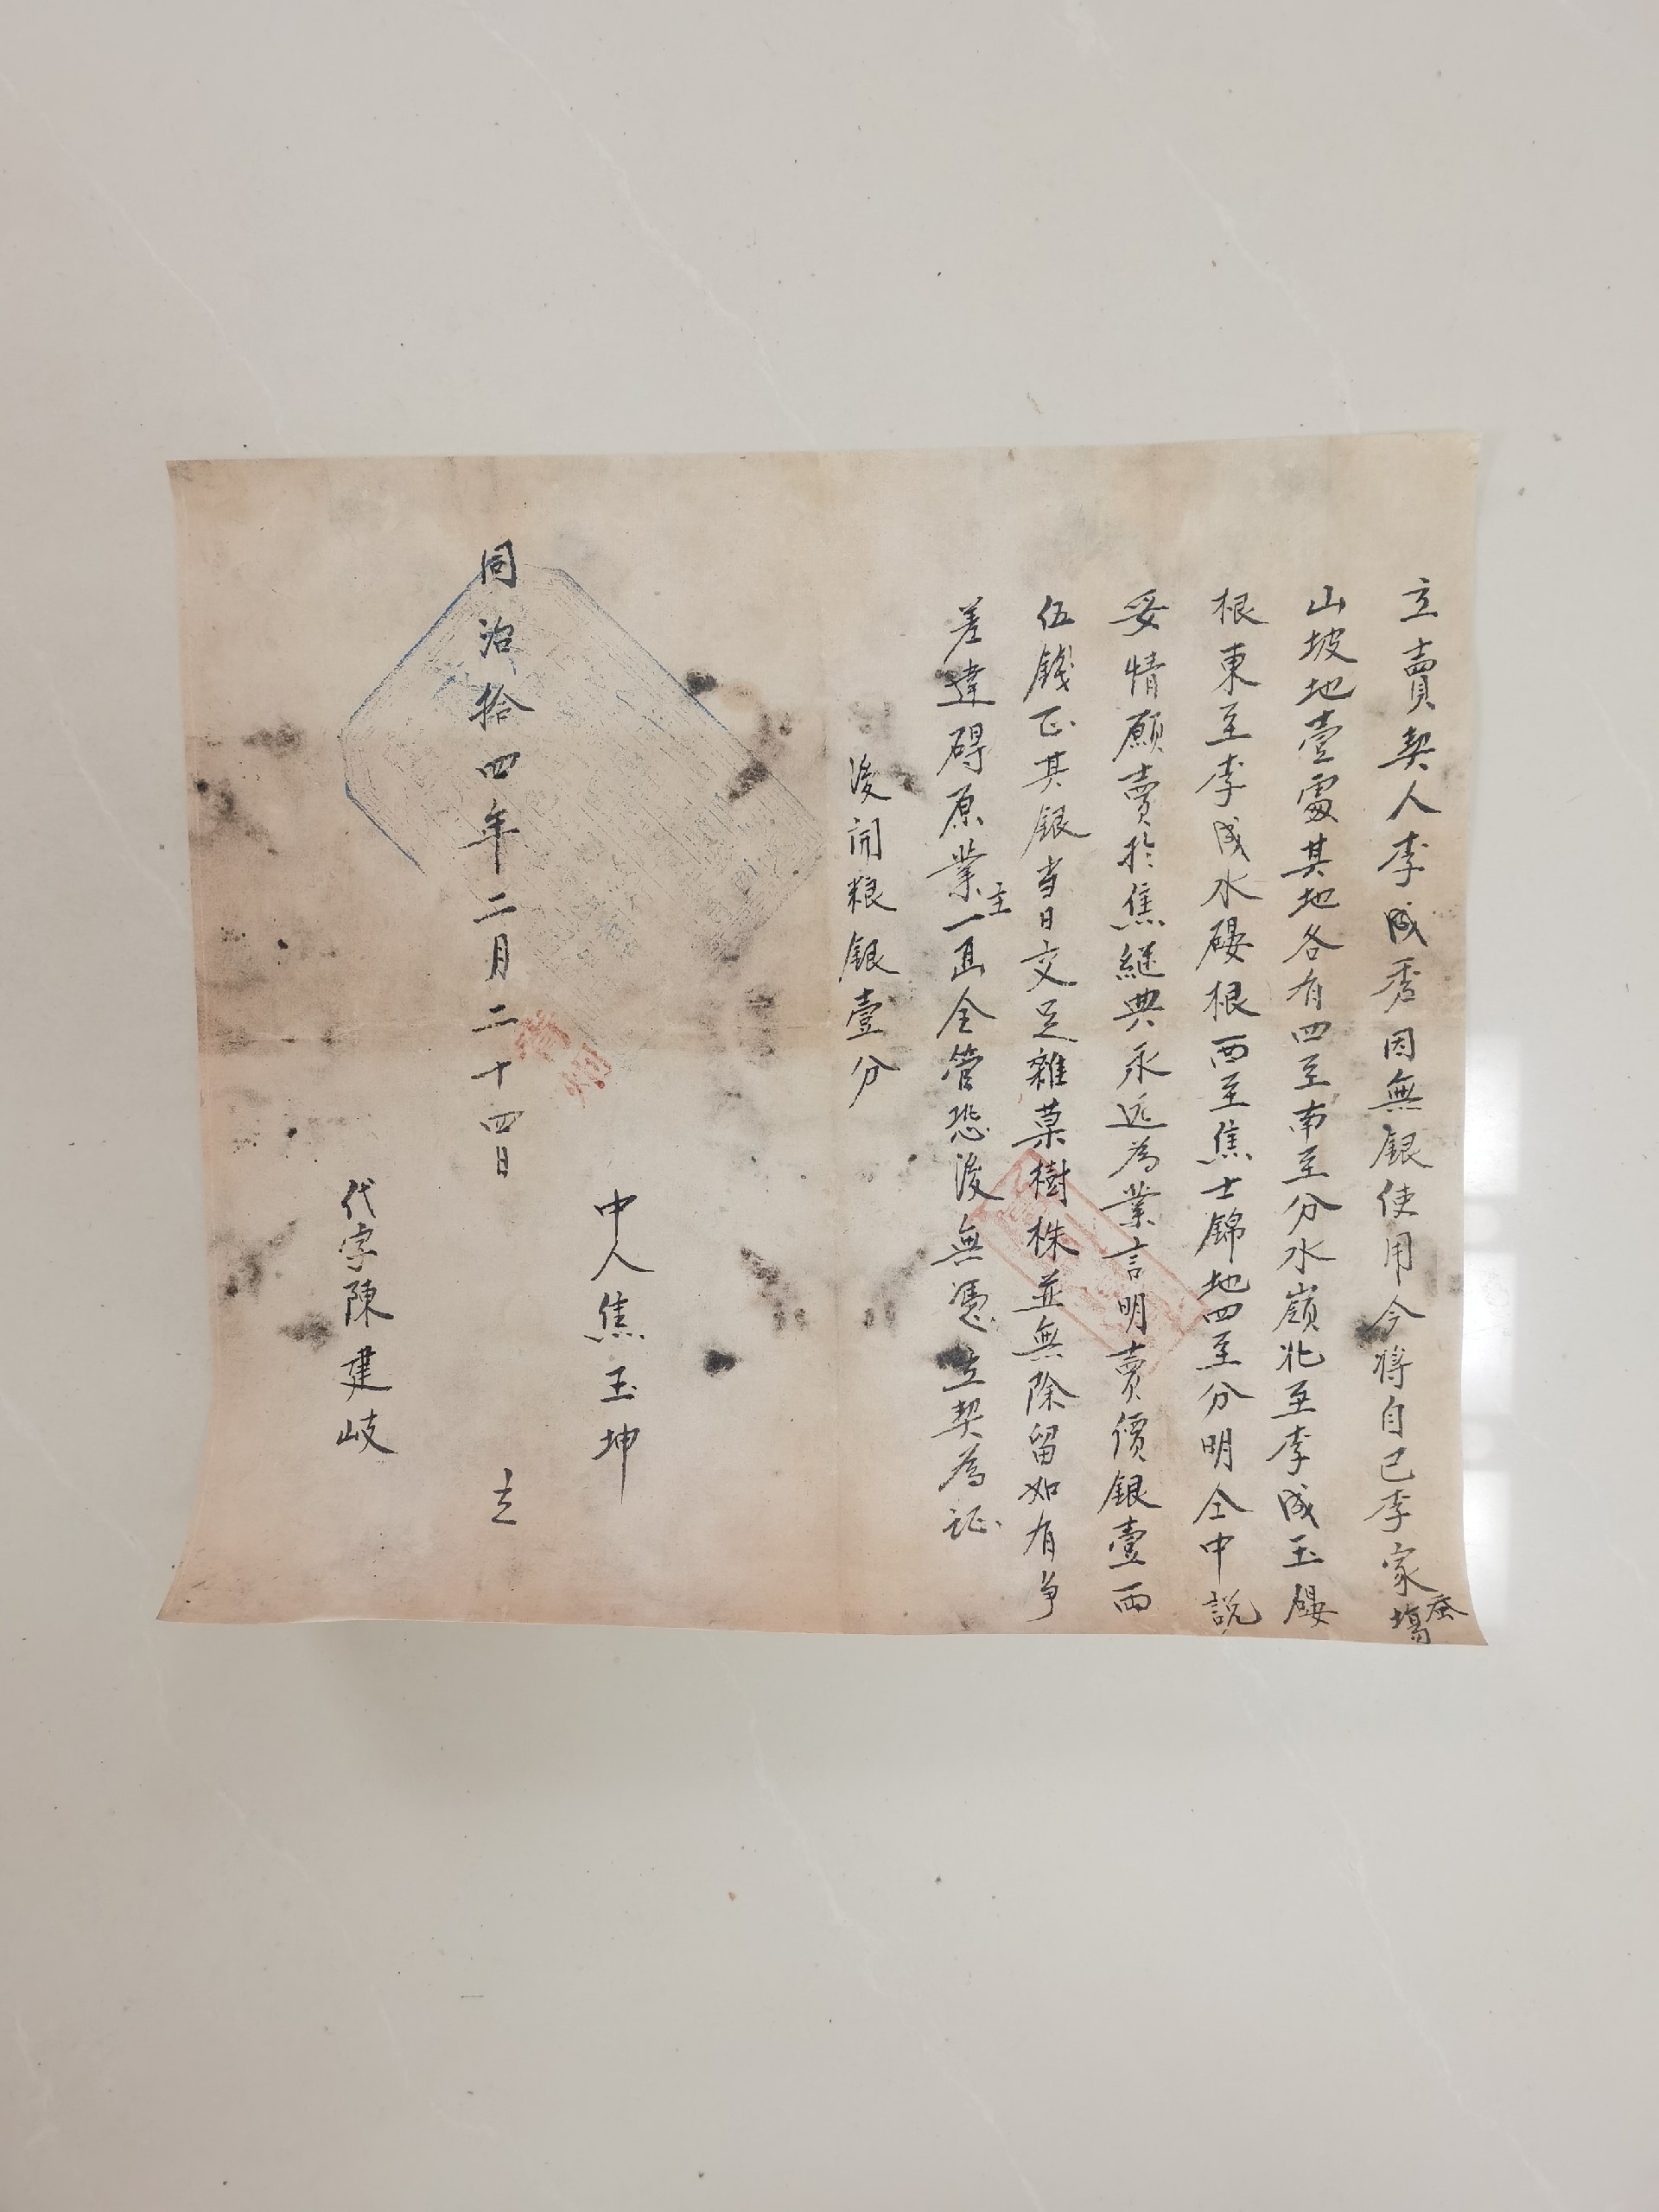 立賣契人李成秀因無銀使用今將自己李家蚕塲
山坡地壹處其地各有四至南至分水嶺北至李成玉磘
根東至李成水磘根西至焦士錦地四至分明仝中説
妥情願賣於焦継典永远為業言明賣價銀壹両
伍錢正其銀當日交足雜菓樹株並無除留如有争
差違碍原業主一面全管恐後無憑立契為证
後開粮銀壹分
中人焦玉坤
同治拾四年二月二十四日 立
代字陳建岐